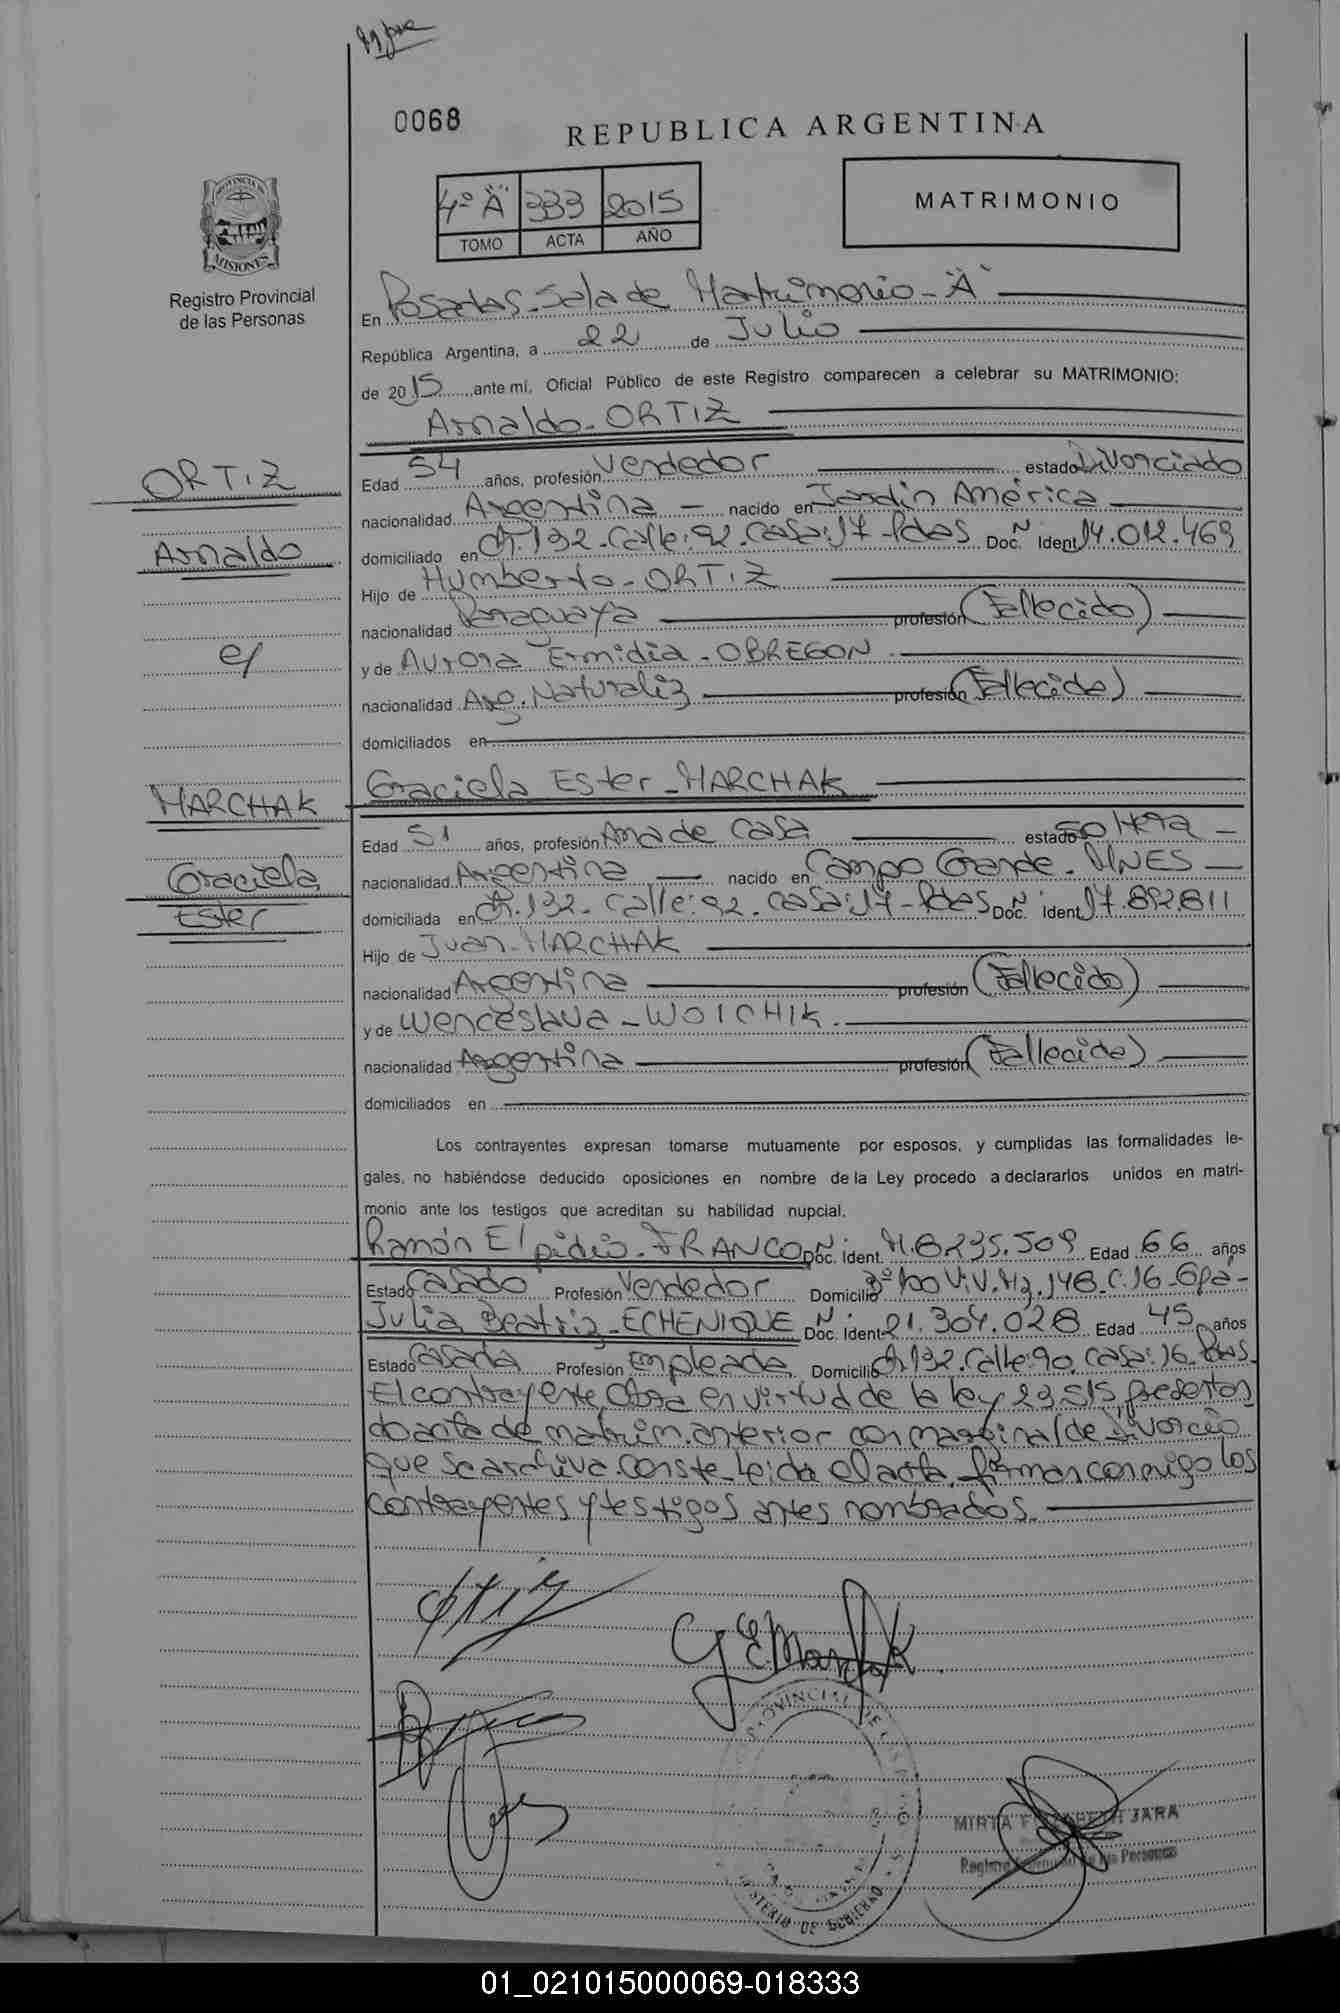 0068
REPUBLICA ARGENTINA
4º "A" 333 2015
TOMO ACTA AÑO
MATRIMONIO
PROVINCIA DE
MISIONES
Registro Provincial
de las Personas
En Posadas-Sala de Matrimonio-"A"
República Argentina, a 22 de Julio
de 2015 ante mi, Oficial Público de este Registro comparecen a celebrar su MATRIMONIO:
Arnaldo-ORTIZ
ORTIZ
Arnaldo
e/
MARCHAK
Graciela
Ester
Edad 54 años, profesión Vendedor estado Divorciado
nacionalidad Argentina - nacido en Jardín América
domiciliado en Ch.132-Calle:92-Casa:17-Pdas Doc. Nº Ident 14.012.469
Hijo de Humberto-ORTIZ
nacionalidad Paraguaya profesión (Fallecido)
y de Aurora Ermidia-OBREGON
nacionalidad Arg. Naturaliz profesión (Fallecida)
domiciliados en
Graciela Ester-MARCHAK
Edad 51 años, profesión Ama de Casa estado Soltera
nacionalidad Argentina nacido en Campo Grande. MNES
domiciliada en Ch.132-Calle:92-Casa:17-Pdas Doc. Nº Ident 17.892.811
Hijo de Juan-MARCHAK
nacionalidad Argentina profesión (Fallecido)
y de Wenceslava-WOICHIK.
nacionalidad Argentina profesión (Fallecida)
domiciliados en
Los contrayentes expresan tomarse mutuamente por esposos, y cumplidas las formalidades le-
gales, no habiéndose deducido oposiciones en nombre de la Ley procedo a declararlos unidos en matri-
monio ante los testigos que acreditan su habilidad nupcial.
Ramón Elpidio-FRANCO Doc. Nº Ident. M.8295.509 Edad 66 años
Estado Casado Profesión Vendedor Domicilio Bº 100 Viv. Mz.148-C.16-Gpá-
Julia Beatriz-ECHENIQUE Doc. Nº Ident 21.304.028 Edad 45 años
Estado Casada Profesión Empleada Domicilio Ch.132.Calle:90.Casa:16.Pdas.
El contrayente Obra en virtud de la ley 23.515, presentan-
do acta de matrim. anterior con marginal de Divorcio
que se archiva. conste. Leida el acta, firman conmigo los
contrayentes y testigos antes nombrados.
Ortiz
G E. Marchak
PROVINCIAL DE
MINISTERIO DE GOBIERNO
MIRTA ELIZABETH JARA
Registro Provincial de las Personas
01_021015000069-018333